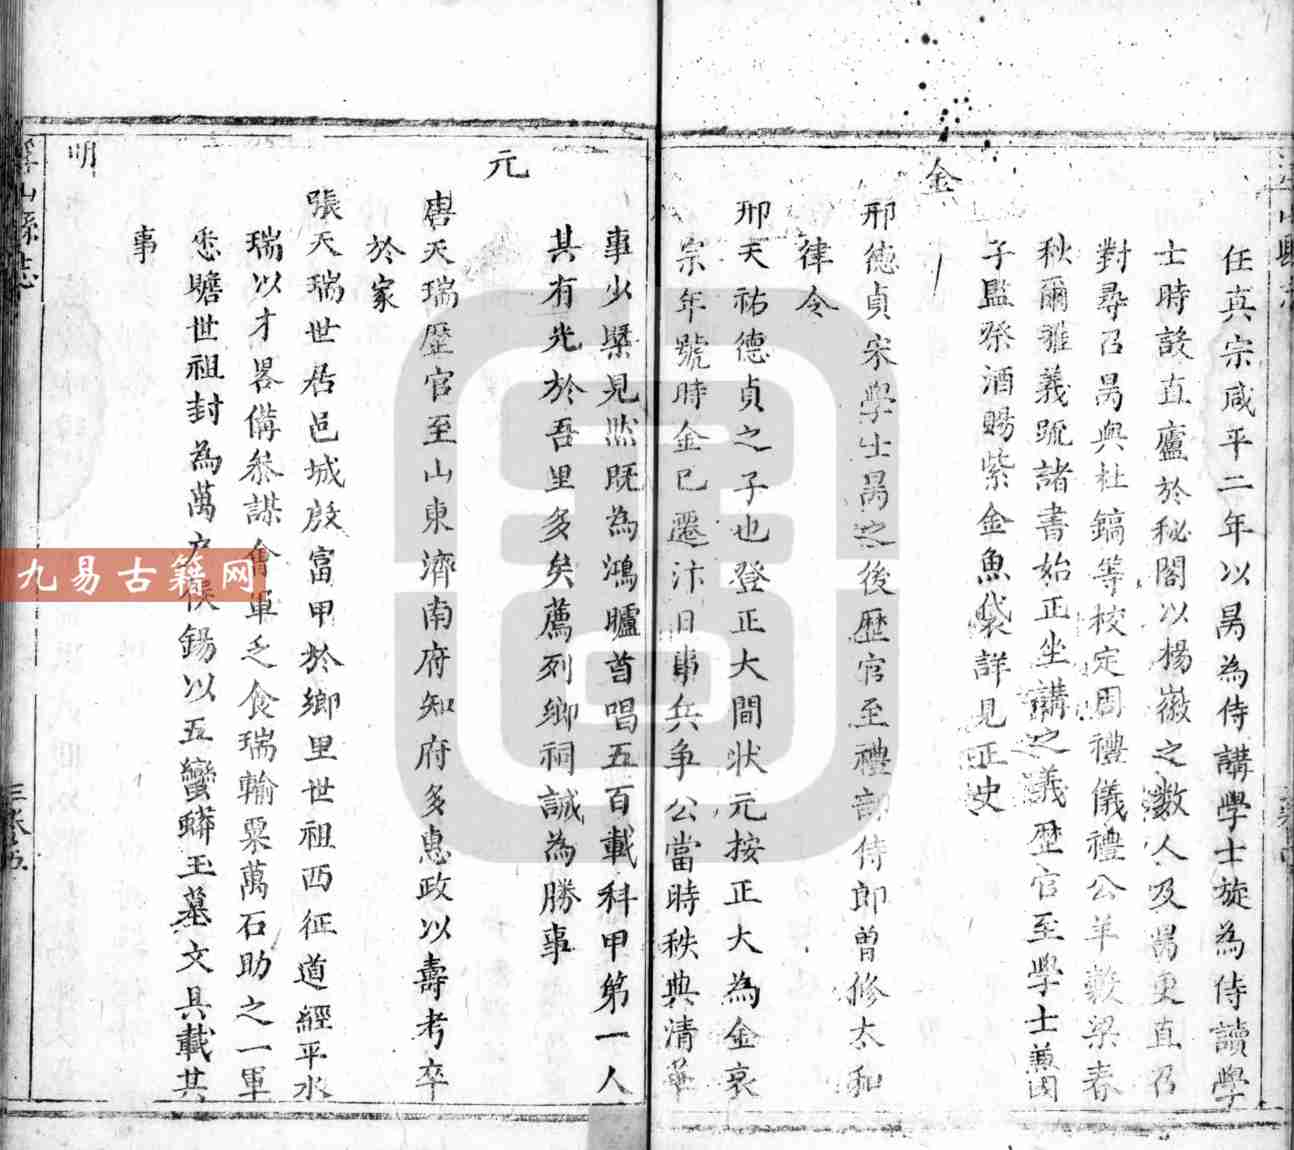 任真宗咸平二年以昺為侍講學士旋為侍讀學
士時設直廬於秘閣以楊徽之數人及昺更直召
對尋召昺與杜鎬等校定周禮儀禮公羊穀梁春
秋爾雅義疏諸書始正坐講之議歷官至學士兼國
子監祭酒賜紫金魚袋詳見正史
金
邢德貞宋學士昺之後歷官至禮部侍郎曾修太和
律令
邢天祐德貞之子也登正大間狀元按正大為金哀
宗年號時金已遷汴日事兵爭公當時秩典清華
事少槩見然既為鴻臚首唱五百載科甲第一人
其有光於吾里多矣薦列鄉祠誠為勝事
元
唐天瑞歷官至山東濟南府知府多惠政以壽考卒
於家
張天瑞世居邑城殷富甲於鄉里世祖西征道經平水
瑞以才畧備叅謀會軍乏食瑞輸粟萬石助之一軍
悉贍世祖封為萬戶侯錫以五蠻蟒玉墓文具載其
事
明
山縣志
九易古籍网